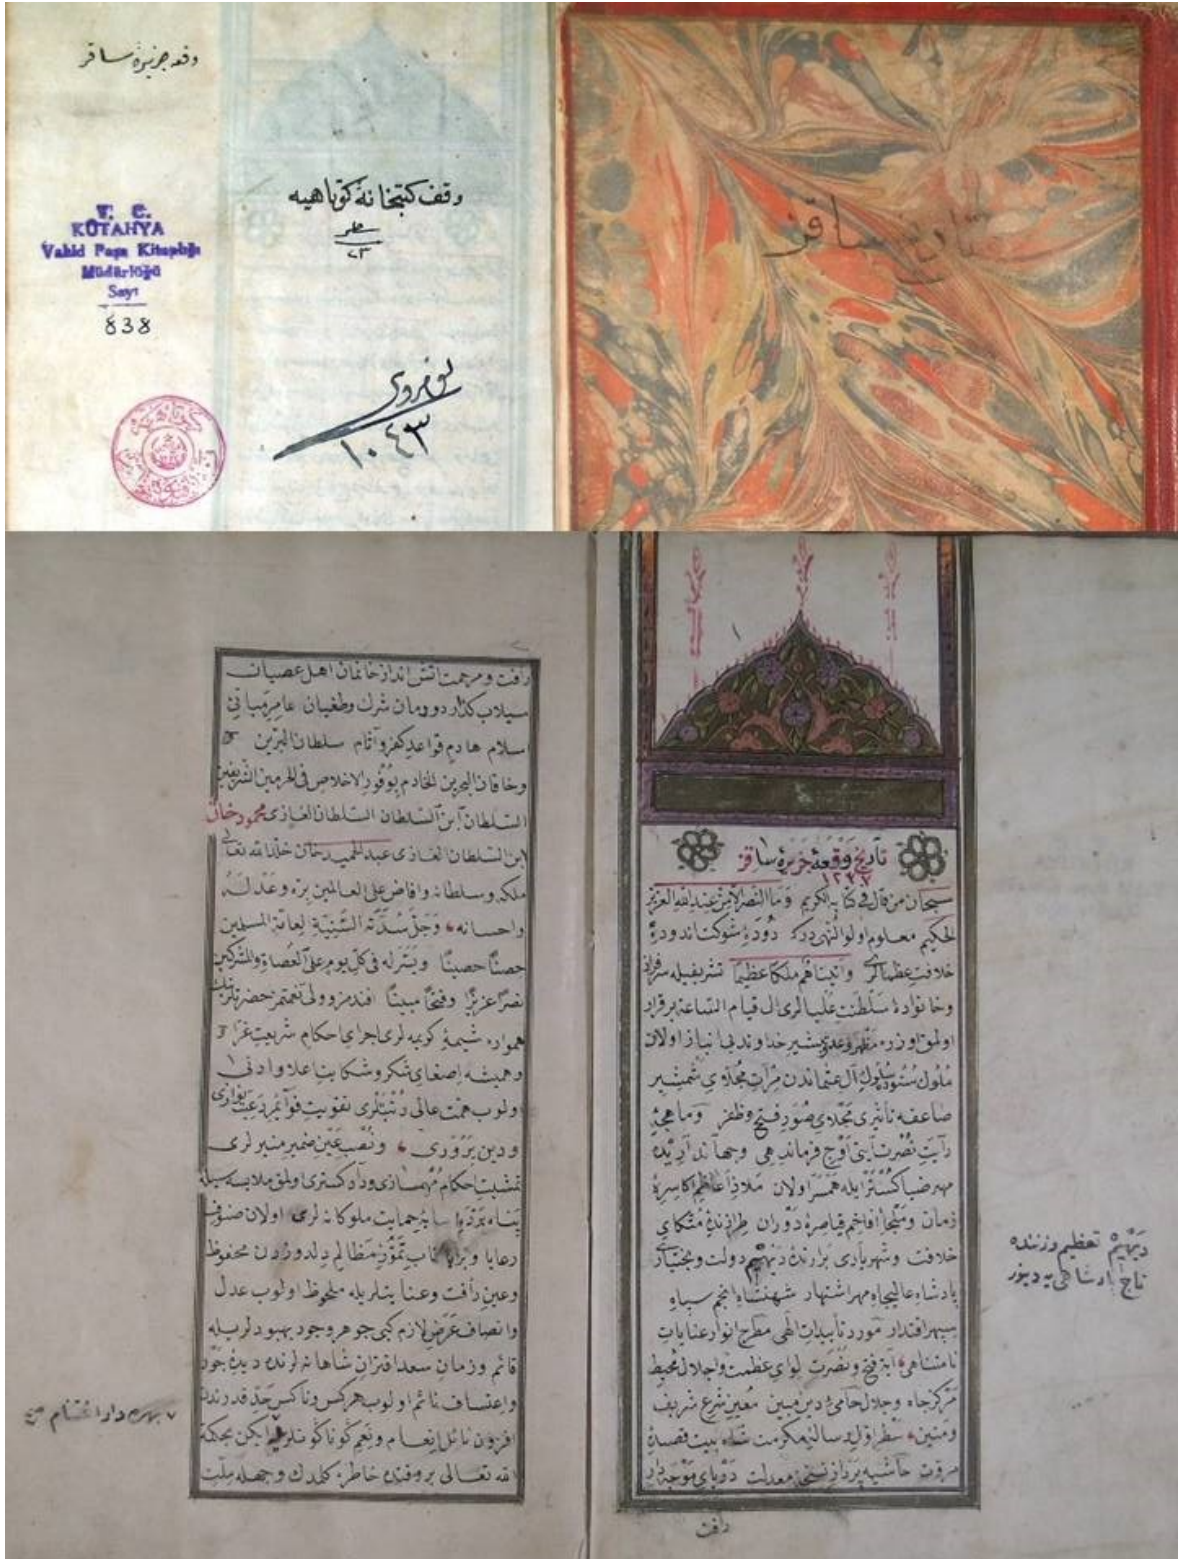 وقعه جزیرهٔ ساقز
T. C.
KÜTAHYA
Vahid Paşa Kitaplığı
Müdürlüğü
Sayı
838
وقف کتبخانهٔ کوتاهیه
٢٣
١٠٤٣
تاریخ ساقز
تاریخ وقعهٔ جزیرهٔ ساقز
١٢٣٧
سبحان من قال فی کتابه الکریم وما النصر الا من عند الله العزیز
الحکیم معلوم اولوالنهی درکه دودهٔ شوکت اندودهٔ
خلافت عظمالری واتیناهم ملکا عظیما تشریفیله سرفراز
وخانوادهٔ سلطنت علیالری الی قیام الساعه برقرار
اولمق اوزره مظهر وعدهٔ بشیر خداوند بی نیاز اولان
ملوک ستوده سلوک آل عثماندن مرآت مجلای شمشیر
صاعقه تأثیری مجلای صور فتح وظفر وماهچهٔ
رایت نصرت آیتی اوج فرماندهی وجهاندارییده
مهر ضیاکستر ایله همسر اولان ملاذ اعاظم اکاسرهٔ
زمان وملجأ افاخم قیاصرهٔ دوران طرازندهٔ متکای
خلافت وشهریاری برازندهٔ دیهیم دولت وبختیاری
پادشاه عالیجاه مهر اشتهار شهنشاه انجم سپاه
سپهر اقتدار مورد تأییدات الهی مطرح انوار عنایات
نامتناهی آیت فتح ونصرت لوای عظمت واجلال محیط
مرکز جاه وجلال حامئ دین مبین معین شرع شریف
ومتین سطر اول رسالهٔ مکرمت شاه بیت قصیدهٔ
مروت حاشیه پرداز نسخهٔ معدلت دریای موجه دار
رأفت
دیهیم تعظیم وزننده
تاج
رأفت ومرحمت آتش انداز خانمان اهل عصیان
سیلاب کذار دودمان شرک وطغیان عامر مبانئ
اسلام هادم قواعد کفر وآثام سلطان البرین و
وخاقان البحرین الخادم بوفود الاخلاص فی الحرمین الشریفین
السلطان ابن السلطان السلطان الغازی محمود خان
ابن السلطان الغازی عبد الحمید خان خلد الله تعالی
ملکه وسلطانه وافاض علی العالمین بره وعدله
واحسانه وجعل سدته السنیة لعامة المسلمین
حصنا حصینا ویسر له فی کل یوم علی العصاة والمشرکین
نصرا عزیزا وفتحا مبینا افندمز وولی نعمتمز حضرتلرینک
همواره شیمهٔ کریمه لری اجرای احکام شریعت غرا و
وهمیشه اصغای شکر وشکایت اعلا وادنی
اولوب همت عالی رتبتلری تقویت قوائم رعیت نوازی
ودین پروری ونصب عین ضمیر منیر لری
تمشیت احکام مهمسازی ودادکستری اولمق ملابسه سیله
پناه بردهٔ سایهٔ حمایت ملوکانه لری اولان صنوف
رعایا وبرایا مظالم دلدوزدن محفوظ
وعین رأفت وعنایتلریله ملحوظ اولوب عدل
وانصاف عرض لازم کبی جوهر وجود بهبودلریله
قائم وزمان سعد اقتران شاهانه لرنده دیدهٔ جور
واعتساف نائم اولوب هرکس وناکس حد قدرندن
افزون نائل انعام ونعم کوناکون ایکن بحکمة
الله تعالی بروقتده خاطره کلمدک وجهله ملت
بهره دار